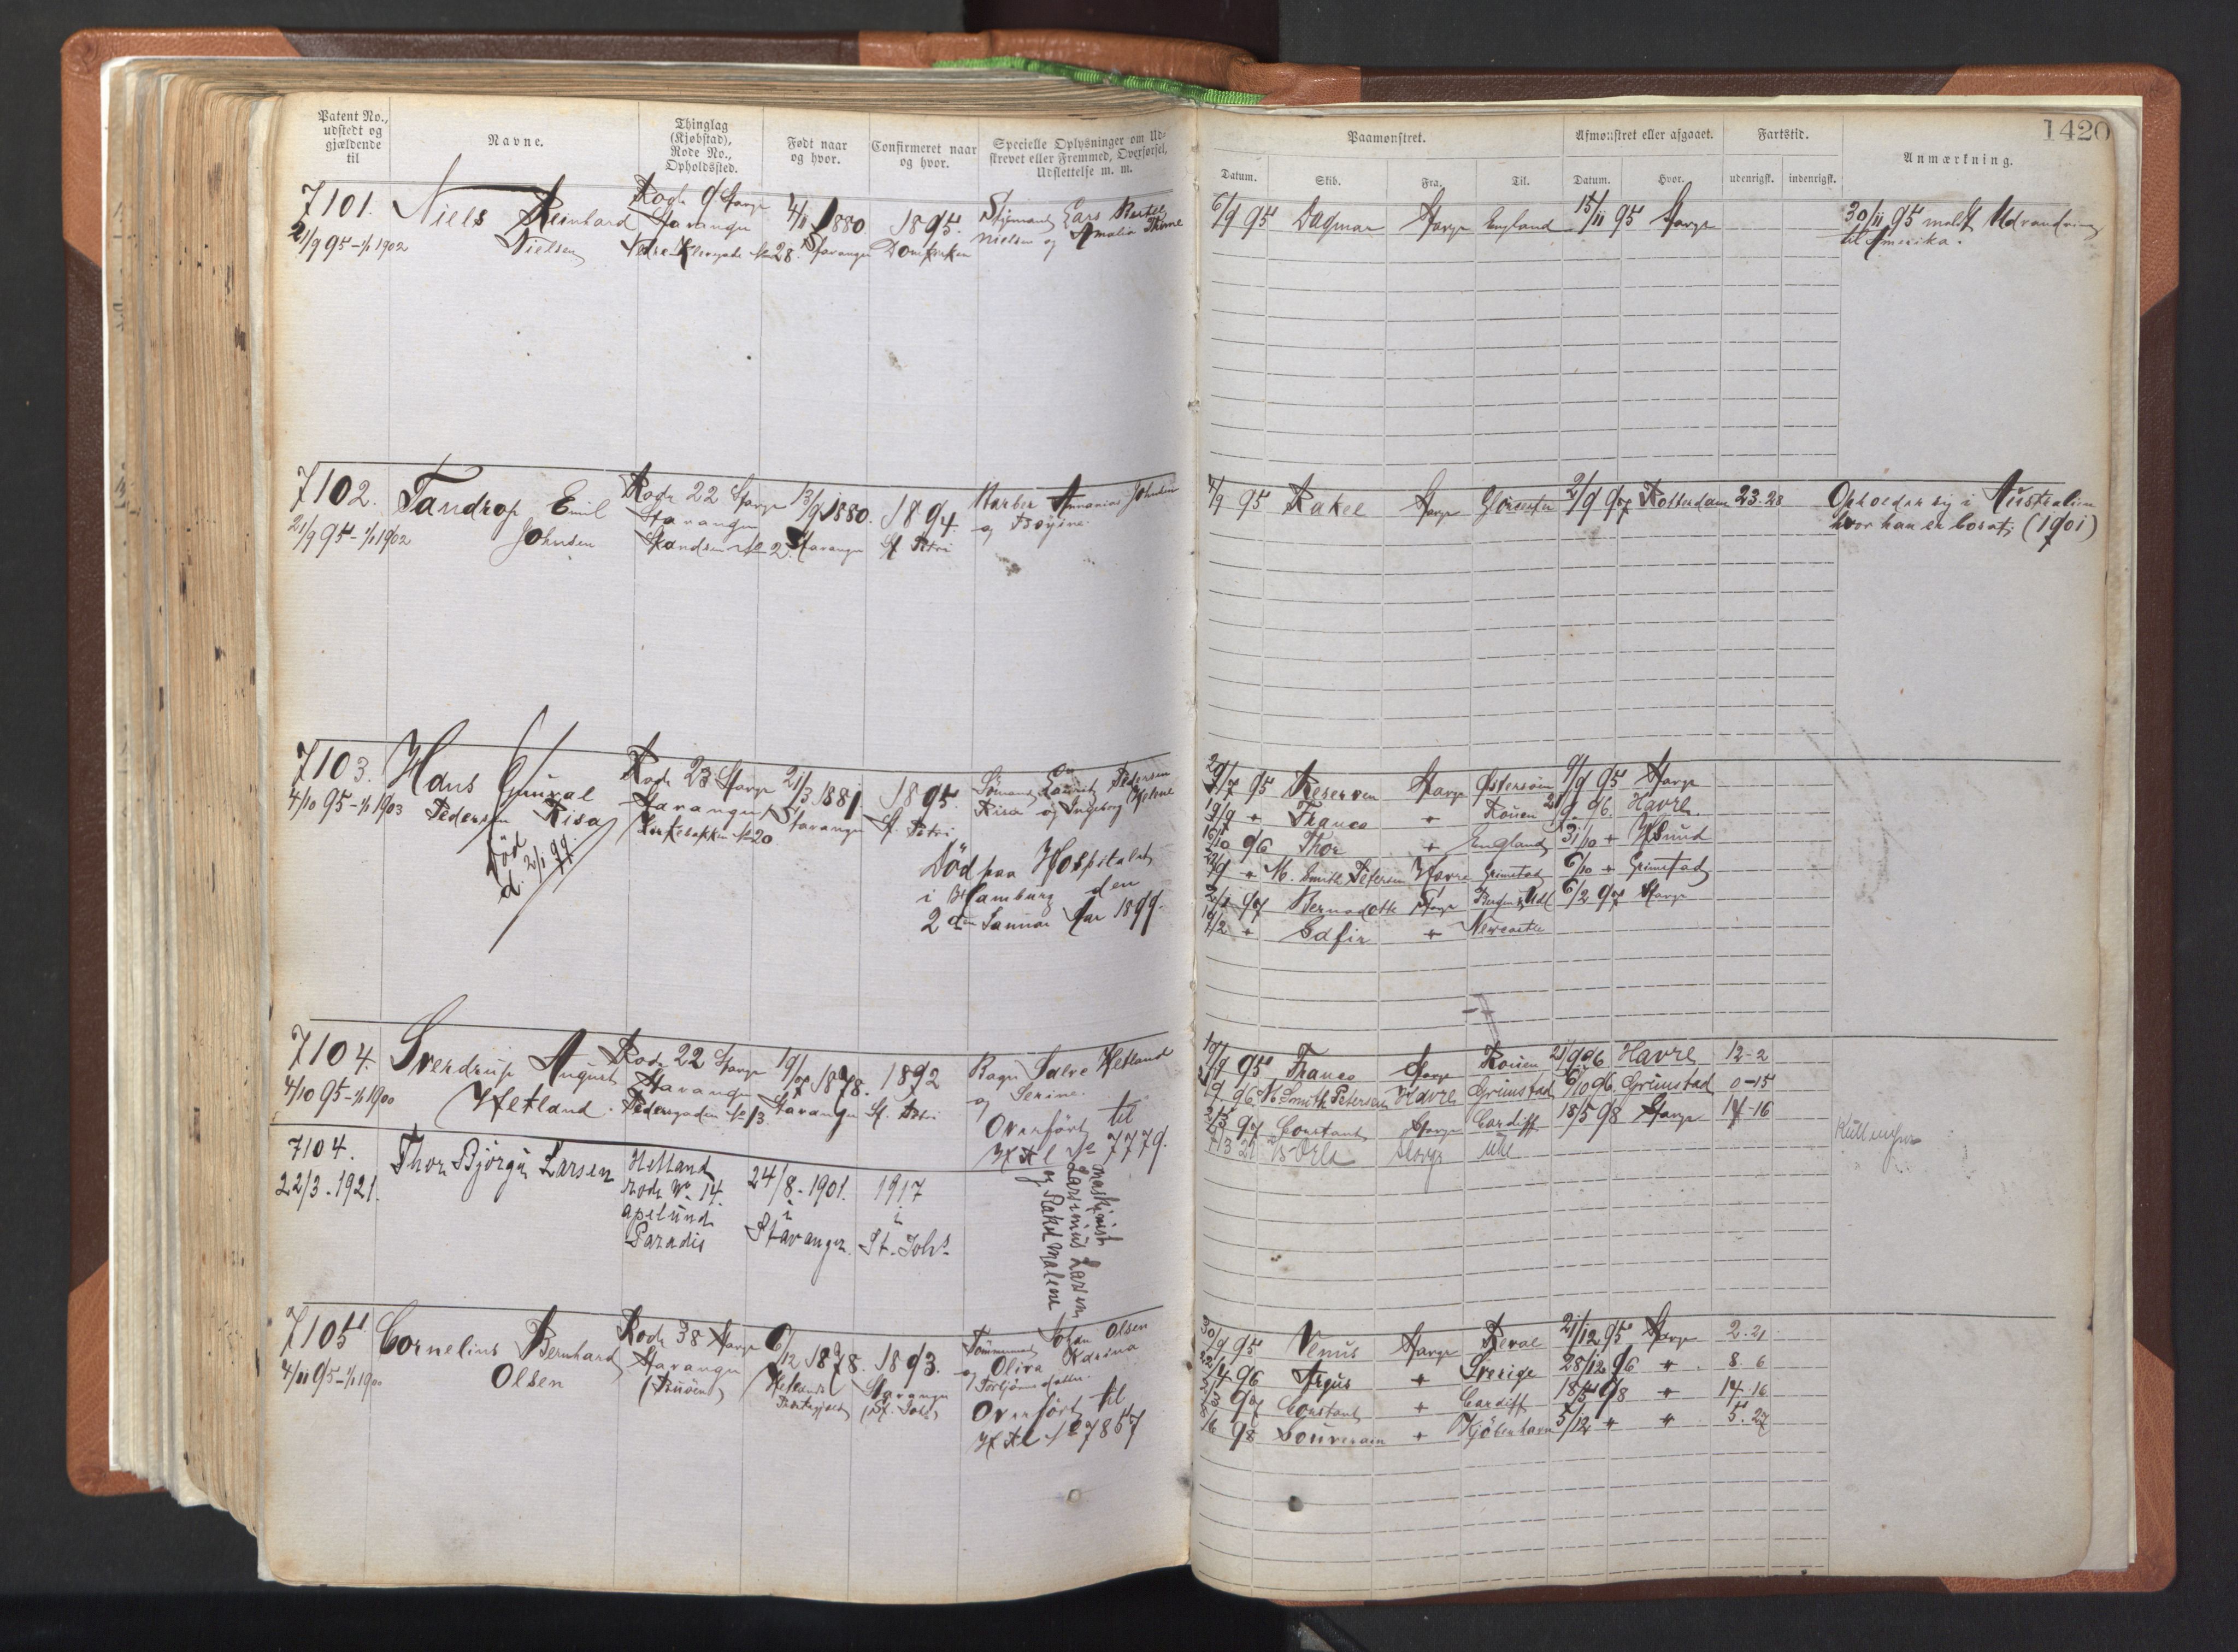 Patent No.,
udstedt og
gjældende
til
Navne.
Thinglag
(Kjøbstad),
Rode No.,
Opholdssted.
Født naar
og hvor.
Confirmeret naar
og hvor.
Specielle Oplysninger om Ud-
skrevet eller Fremmed, Overførsel,
Udslettelse m. m.
7101.
21/9 95 - 1/1 1902
Niels Reinhard
Nielsen
Rode 9 Starge
Stavanger
Nedre No 28.
4/11 1880
Stavanger
1895.
Domkirken
Styrmand Lars
Nielsen og Amalia
7102.
21/9 95 - 1/1 1902
Tandrop Emil
Johnsen
Rode 22 Starge
Stavanger
No 2.
13/9 1880.
Stavanger
1894.
St Petri
Barber Johnsen
og
7103.
4/10 95 - 1/1 1903
Hans Gunval
Pedersen Risa
Död
d. 2/1 99.
Rode 23 Starge
Stavanger
Kirkebakken No 20
21/3 1881
Stavanger
1895.
St. Petri
Sömand Laurits Pedersen
Risa og Ingeborg Helene
Död paa Hospitalet
i Hamburg den
2den Januar Aar 1899.
7104.
4/10 95 - 1/1 1900
Sverdrup August
Hetland.
Rode 22 Starge
Stavanger
Pedersgaden No 13.
19/7 1878.
Stavanger
1892
St. Petri
Bager Salve Hetland
og Serine.
Overfört til
No 7779.
7104.
22/3.-1921.
Thor Björgu Larsen
Hetland
Rode No 14
Paradis
24/8-1901.
i
Stavanger.
1917
i
St. Johs
maskinist
Larsinius Larsen
og Malene
7105
4/11 95 - 1/1 1900
Cornelius Bernhard
Olsen
Rode 38 Starge
Stavanger
(Buöen)
6/12 1878.
Hetland
1893.
Stavanger
(St. Johs)
Tömmermand Johan Olsen
og Oliva Karina
Overfört til
No 7857
Paamønstret.
Afmønstret eller afgaaet.
Fartstid.
1420
Datum.
Skib.
Fra.
Til.
Datum.
Hvor.
udenrigsk.
indenrigsk.
Anmærkning.
6/9 95 Dagmar Starge England 15/11 95 Starge
30/11 95 meldt Udvandring
til Amerika.
7/9 95 Rakel Starge Gloucester 2/9 97 Rotterdam 23-28
Opholder sig i Australien
hvor han er bosat (1901)
29/7 95 Reserven Starge Østersöen 9/9 95 Starge
19/9 + Franco + Rouen 21/9 96. Havre.
16/10 96 Thor + England 31/10 + Hsund
22/9 + N. Smith Petersen Havre Grimstad 6/10 + Grimstad
2/1 97 Bernadotte Starge Bergen & Udl 6/2 97 Starge
16/2 + Edfin + Newcastle
19/9 95 Franco Starge Rouen 21/9 96 Havre 12-2
21/9 96 N. Smith Petersen Havre Grimstad 6/10 96. Grimstad 0-15
2/3 97 Constant Starge Cardiff 18/5 98 Starge 14-16
30/9 95 Venus Starge Reval 21/12 95 Starge 2.21
22/4 96 Argus + Sverige 28/12 96 + 8. 6
2/3 97 Constant + Cardiff 18/5 98 + 14.16
8/6 98 Souverain + Kjöbenhavn 5/12 + + 5.27